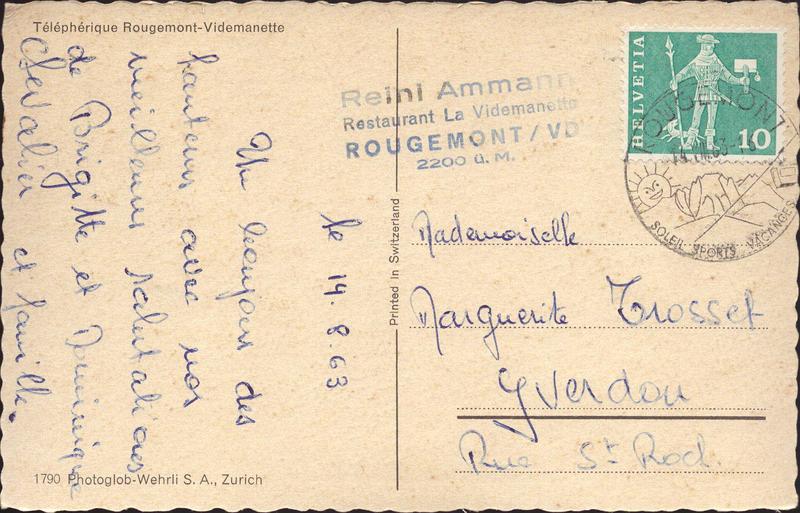 Téléphérique Rougemont-Videmanette
le 14.8.63
Un bonjour des
hauteurs avec nos
meilleures salutations
de Brigitte et Dominique
Chevalier et famille.
1790 Photoglob-Wehrli S. A., Zurich
Printed in Switzerland
Reini Ammann
Restaurant La Videmanette
ROUGEMONT/VD
2200 ü. M.
HELVETIA
10
ROUGEMONT
SOLEIL SPORTS VACANCES
Mademoiselle
Marguerite Trosset
Yverdon
Rue St Roch.